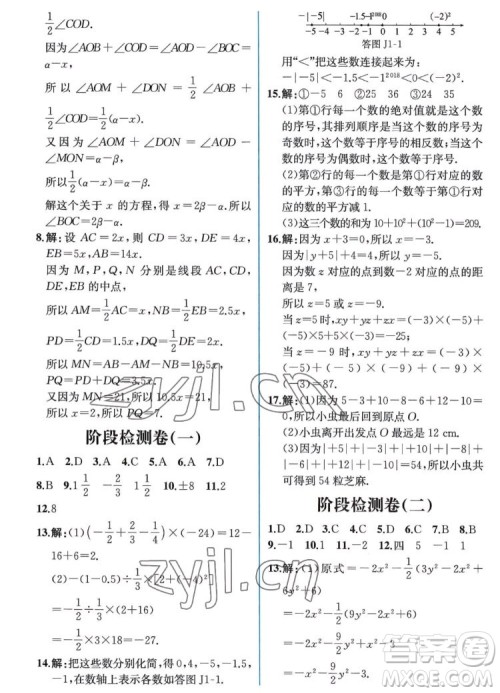 1/2∠COD.
因为∠AOB+∠COD=∠AOD-∠BOC=α-x,
所以∠AOM+∠DON=1/2(∠AOB+∠COD)=1/2(α-x).
又因为∠AOM+∠DON=∠AOD-∠MON=α-β,
所以1/2(α-x)=α-β.
解这个关于 x 的方程,得 x=2β-α.所以∠BOC=2β-α.
8.解:设 AC=2x,则 CD=3x,DE=4x,
EB=5x,AB=14x.
因为 M,P,Q,N 分别是线段 AC,CD,
DE,EB 的中点,
所以 AM=1/2AC=x,NB=1/2EB=2.5x,
PD=1/2CD=1.5x,DQ=1/2DE=2x.
所以 MN=AB-AM-NB=10.5x,
PQ=PD+DQ=3.5x.
又因为 MN=21,所以10.5x=21,所以 x=2.
所以 PQ=7.
阶段检测卷(一)
1.A 2.D 3.A 4.C 5.A 6.A 7.D
8.B 9.1 1/2 -2/3 1 1/2 10.±8 11.2
12.8
13.解:(1)(-1/2+2/3-1/4)×(-24)=12-
16+6=2.
(2)-(1-0.5)÷1/3×[2+(-4)²]
=-1/2÷1/3×(2+16)
=-1/2×3×18=-27.
14.解:把这些数分别化简,得0,4,-5,-1.5,
-1,在数轴上表示各数如答图 J1-1.
-|-5| -1.5 -1²⁰¹⁸ 0 (-2)²
-6 -5 -4 -3 -2 -1 0 1 2 3 4 5
答图 J1-1
用“<”把这些数连接起来为
-|-5|<-1.5<-1²⁰¹⁸<0<(-2)².
15.解:①-5 6 ②25 36 ③24 35
(1)第①行每一个数的绝对值就是这个数的序号,其排列顺序是当这个数的序号为奇数时,这个数是序号的相反数;当这个数的序号为偶数时,这个数为序号.
(2)第②行的每一个数是第①行对应的数的平方,第③行的每一个数是第①行对应数的平方减1.
(3)这三个数的和为10+10²+(10²-1)=209.
16.解:因为 x+3=0,所以 x=-3.
因为|y|+|5|+4=14,所以|y|=5,所以 y=±5.
因为数 z 对应的点到数-2对应的点的距离是7,
所以 z=5或 z=-9.
当 z=5时,xy+yz+zx=(-3)×(-5)+
(-5)×5+5×(-3)=-25.
当 z=-9时,xy+yz+zx=(-3)×(-5)+
(-5)×(-9)+(-9)×(-3)=87.
17.解:(1)因为5-3+10-8-6+12-10=
0,所以小虫最后回到原点O.
(2)小虫离开出发点O最远为12 cm.
(3)因为|5|+|-3|+|10|+|-8|+|-6|+
|12|+|-10|=54,54×1=54,所以小虫共可得到54粒芝麻.
阶段检测卷(二)
1.D 2.D 3.C 4.C 5.A 6.B 7.B 8.B
9.-1 10.1 11.-2 12.四 5 -1 1
13.解:(1)原式=-2x²-1/2(3y²-2x²+6y²)
=-2x²-1/2(9y²-2x²)
=-2x²-9/2y²+x²
=-x²-9/2y².
zyjl.cn
zyjl.cn
答案圈
MXQE.COM